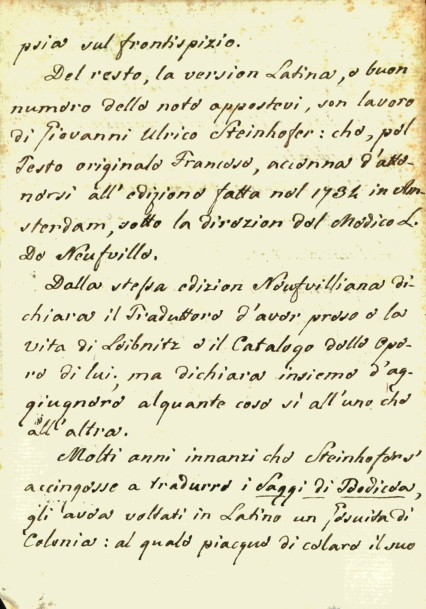 psia sul frontispizio.
Del resto, la version Latina, e buon
numero delle note appostevi, son lavoro
di Giovanni Ulrico Steinhofer: che, pel
Testo originale Francese, accenna d'atte-
nersi all'edizione fatta nel 1734 in Am-
sterdam, sotto la direzion del Medico L.
De Neufville.
Dalla stessa edizion Neufvilliana di-
chiara il Traduttore d'aver preso e la
vita di Leibnitz e il Catalogo delle Ope-
re di lui, ma dichiara insieme d'ag-
giugnere alquante cose sì all'uno che
all'altra.
Molti anni innanzi che Steinhofer s'
accingesse a tradurre i Saggi di Teodicea,
gli avea voltati in Latino un Gesuita di
Colonia: al quale piacque di celare il suo